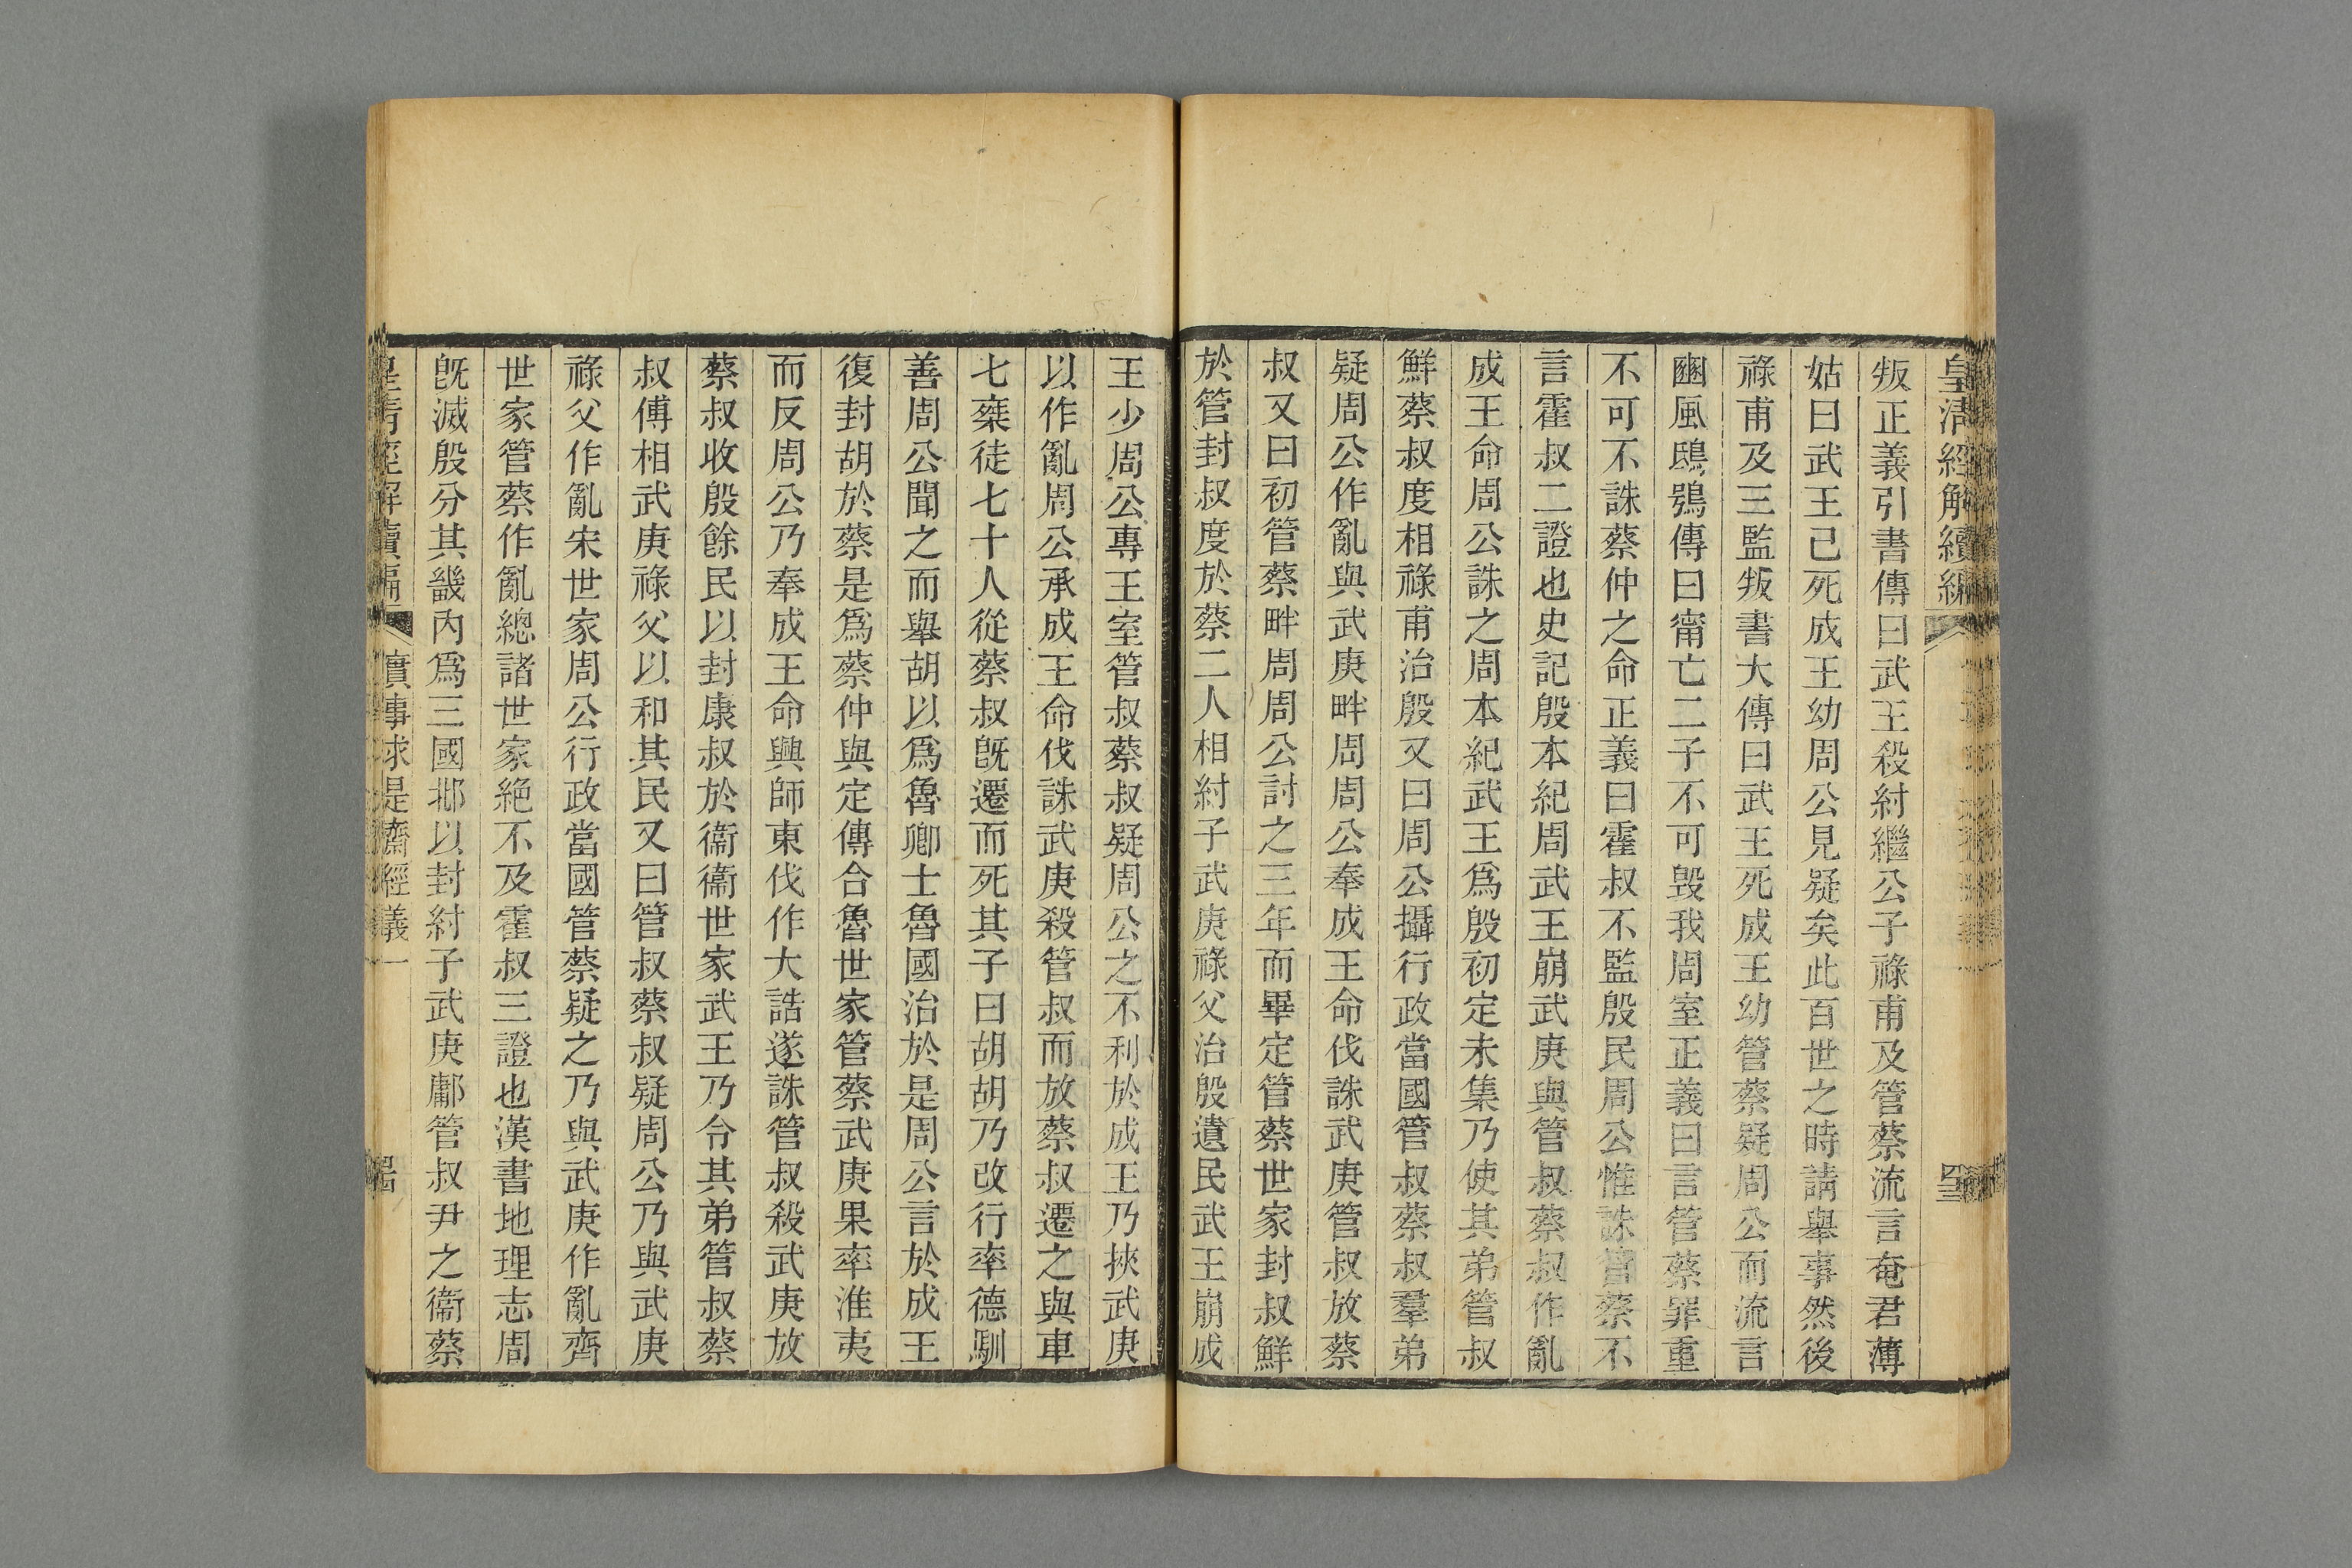 皇清經解續編
叛正義引書傳曰武王殺紂繼公子祿甫及管蔡流言奄君薄
姑曰武王已死成王幼周公見疑矣此百世之時請舉事然後
祿甫及三監叛書大傳曰武王死成王幼管蔡疑周公而流言
豳風鴟鴞傳曰甯亡二子不可毀我周室正義曰言管蔡罪重
不可不誅蔡仲之命正義曰霍叔不監殷民周公惟誅管蔡不
言霍叔二證也史記殷本紀周武王崩武庚與管叔蔡叔作亂
成王命周公誅之周本紀武王爲殷初定未集乃使其弟管叔
鮮蔡叔度相祿甫治殷又曰周公攝行政當國管叔蔡叔羣弟
疑周公作亂與武庚畔周周公奉成王命伐誅武庚管叔放蔡
叔又曰初管蔡畔周周公討之三年而畢定管蔡世家封叔鮮
於管封叔度於蔡二人相紂子武庚祿父治殷遺民武王崩成
王少周公專王室管叔蔡叔疑周公之不利於成王乃挾武庚
以作亂周公承成王命伐誅武庚殺管叔而放蔡叔遷之與車
七椉徒七十人從蔡叔旣遷而死其子曰胡胡乃改行率德馴
善周公聞之而舉胡以爲魯卿士魯國治於是周公言於成王
復封胡於蔡是爲蔡仲與定傳合魯世家管蔡武庚果率淮夷
而反周公乃奉成王命興師東伐作大誥遂誅管叔殺武庚放
蔡叔收殷餘民以封康叔於衞衞世家武王乃令其弟管叔蔡
叔傅相武庚祿父以和其民又曰管叔蔡叔疑周公乃與武庚
祿父作亂宋世家周公行政當國管蔡疑之乃與武庚作亂齊
世家管蔡作亂總諸世家絕不及霍叔三證也漢書地理志周
旣滅殷分其畿內爲三國邶以封紂子武庚鄘管叔尹之衞蔡
皇清經解續編 實事求是齋經義一